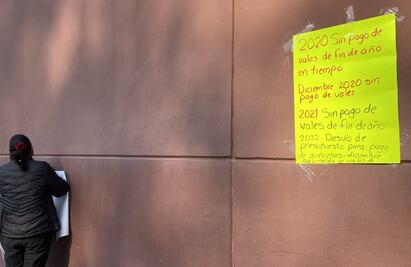 2020 Sin pago de
vales de fin de año
en tiempo
Diciembre 2020 sin
pago de vales
2021 Sin pago de
vales de fin de año
2022 Desvío de
presupuesto para pago
de quincenas diciembre
de